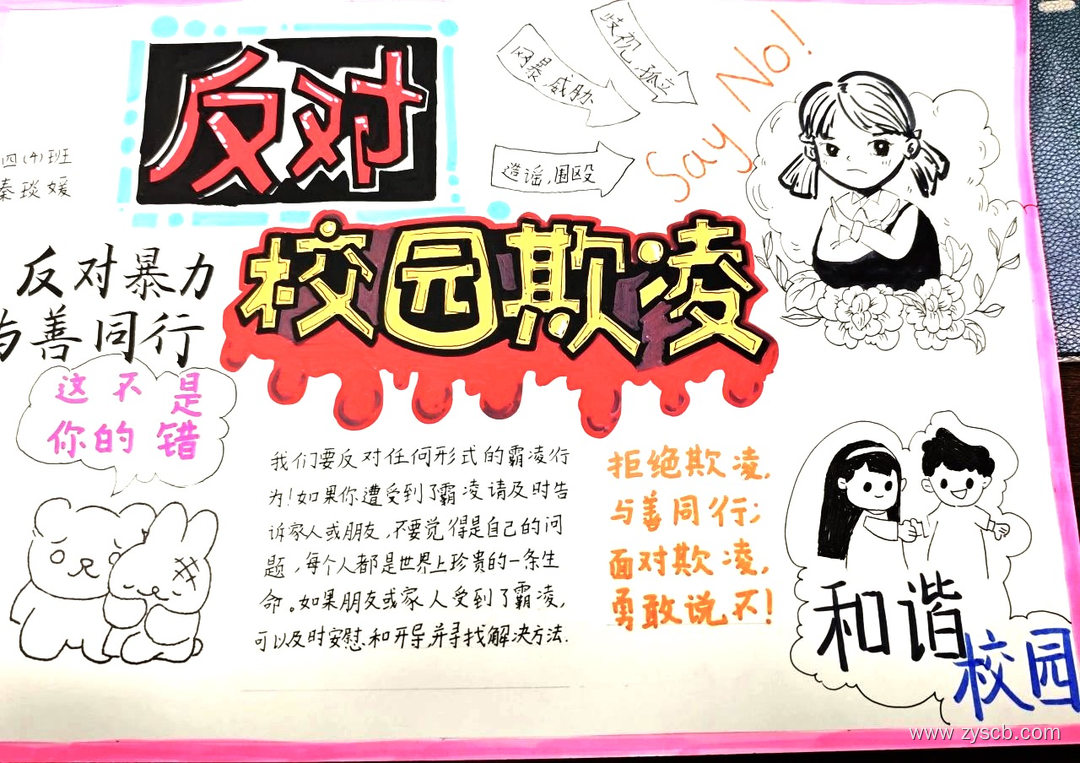 反对
网暴,威胁
歧视,孤立
造谣,围殴
Say No!
四(4)班
秦琰媛
校园欺凌
反对暴力
与善同行
这不是
你的错
我们要反对任何形式的霸凌行
为!如果你遭受到了霸凌请及时告
诉家人或朋友,不要觉得是自己的问
题,每个人都是世界上珍贵的一条生
命。如果朋友或家人受到了霸凌,
可以及时安慰和开导并寻找解决方法.
拒绝欺凌,
与善同行;
面对欺凌,
勇敢说不!
和谐
校园
www.zyscb.com